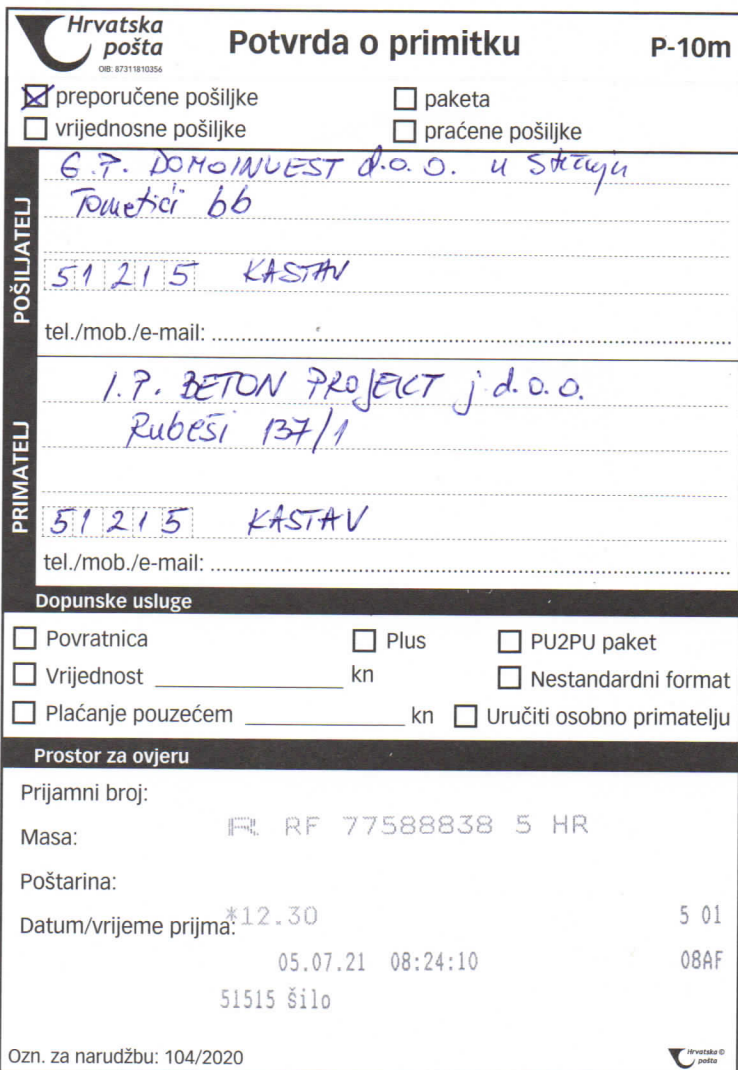 Hrvatska
pošta
OIB: 87311810356
Potvrda o primitku
P-10m
preporučene pošiljke
paketa
vrijednosne pošiljke
praćene pošiljke
POŠILJATELJ
G.P. DOMOINVEST d.o.o. u Stečaju
Tometići bb
51215 KASTAV
tel./mob./e-mail:
PRIMATELJ
I.P. BETON PROJEKT j.d.o.o.
Rubeši 137/1
51215 KASTAV
tel./mob./e-mail:
Dopunske usluge
Povratnica
Plus
PU2PU paket
Vrijednost kn
Nestandardni format
Plaćanje pouzećem kn
Uručiti osobno primatelju
Prostor za ovjeru
Prijamni broj:
R RF 77588838 5 HR
Masa:
Poštarina:
Datum/vrijeme prijma: *12.30 5 01
05.07.21 08:24:10 08AF
51515 Šilo
Ozn. za narudžbu: 104/2020
Hrvatska ©
pošta